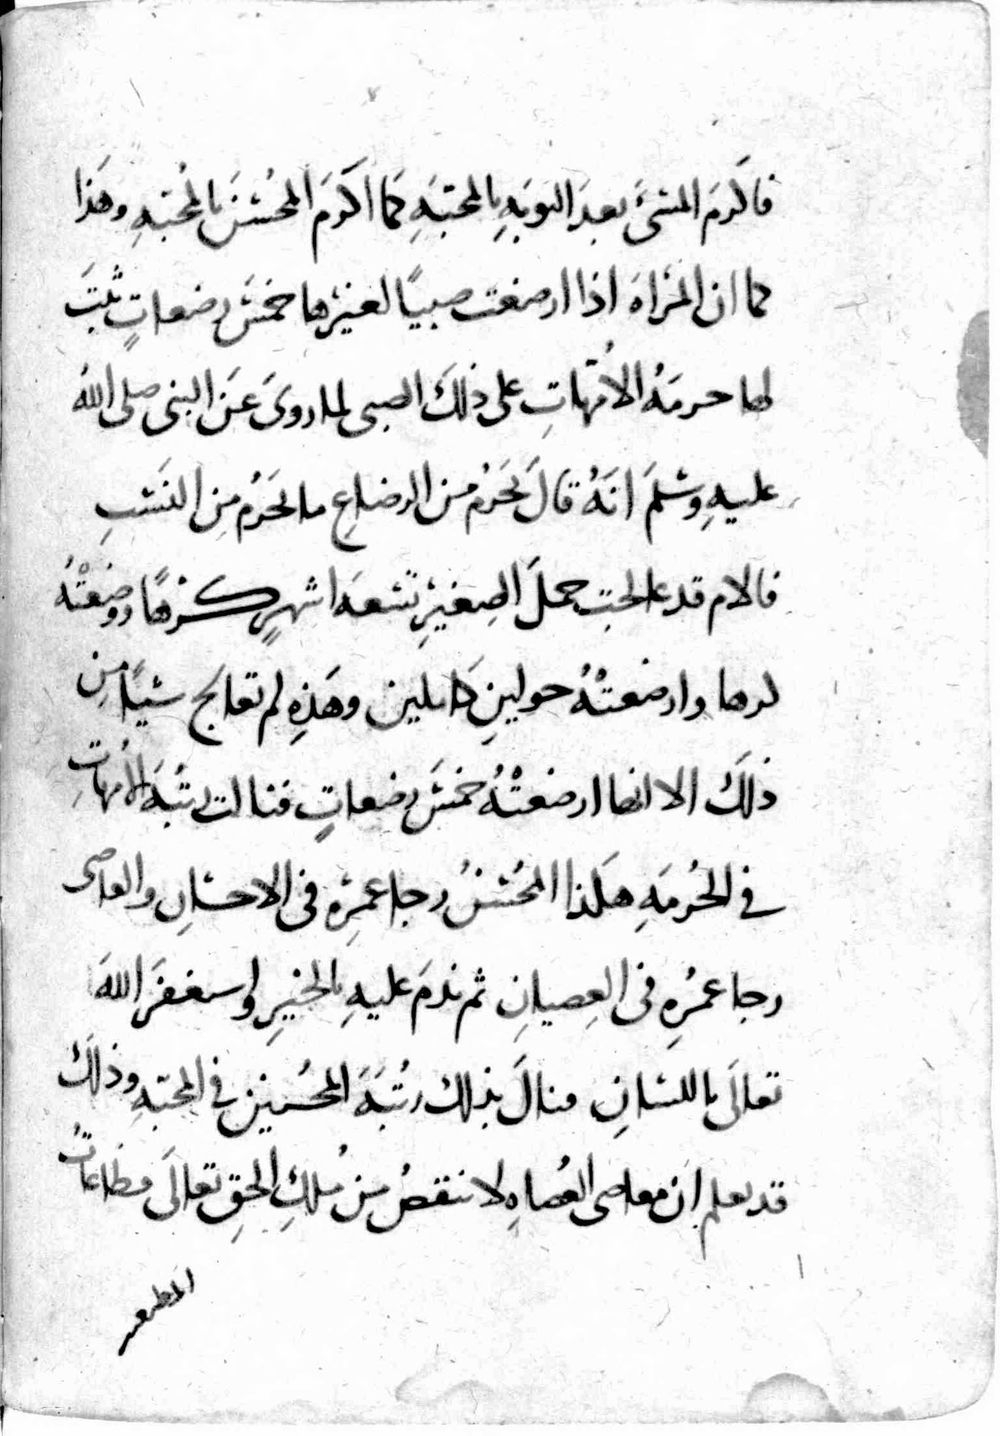 فاكرمَ المسئَ بعدَ التوبَهِ بالمحبّهِ كما اكرَمَ المحُسْنَ بالمحُبّهِ وهَذا
كما ان المَرْاهَ اذا ارضعت صبيًا لغيْرها خمسَ رضعاتٍ ثبْتَ
لها حرمَهُ الاُمّهاتِ على ذلكَ الصبى لما روىَ عَن النبى صلى الله
عليهِ وسْلمَ انهُ قالَ يَحرُم من الرضاعِ ما يحَرُم مِن النَسَبِ
فالام قد عالجت حملَ الصغيْرِ تسْعهَ اشهرٍ كرْهًا ووضعْتْهُ
كرها وارضعتْهُ حولينِ كاملين وهَذهِ لم تعالج شيًا مِن
ذلكَ الا انها ارضعتْهُ خمسَ رضعاتٍ فنالت رتبهَ الاُمهاتِ
في الحُرمَهِ هكذا المحُسْنُ رجا عمرْهِ فى الاحسْانِ والعاصى
رجا عمرْهِ فى العِصيانِ ثم ندمَ عليهِ بالخيرِ واستغفرَ اللهَ
تعالَى باللسْانِ فنالَ بذلك رُتبَهَ المحُسْنِين في المحبّهِ وذلكَ
قد يعلم ان معاصى العُصاهِ لا تنقصُ من مُلكِ الحقِ تعالَى وطاعاتُ
المطيعين